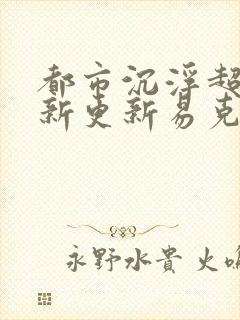 都市沉浮超
新更新易克
永野水貴 火鳴